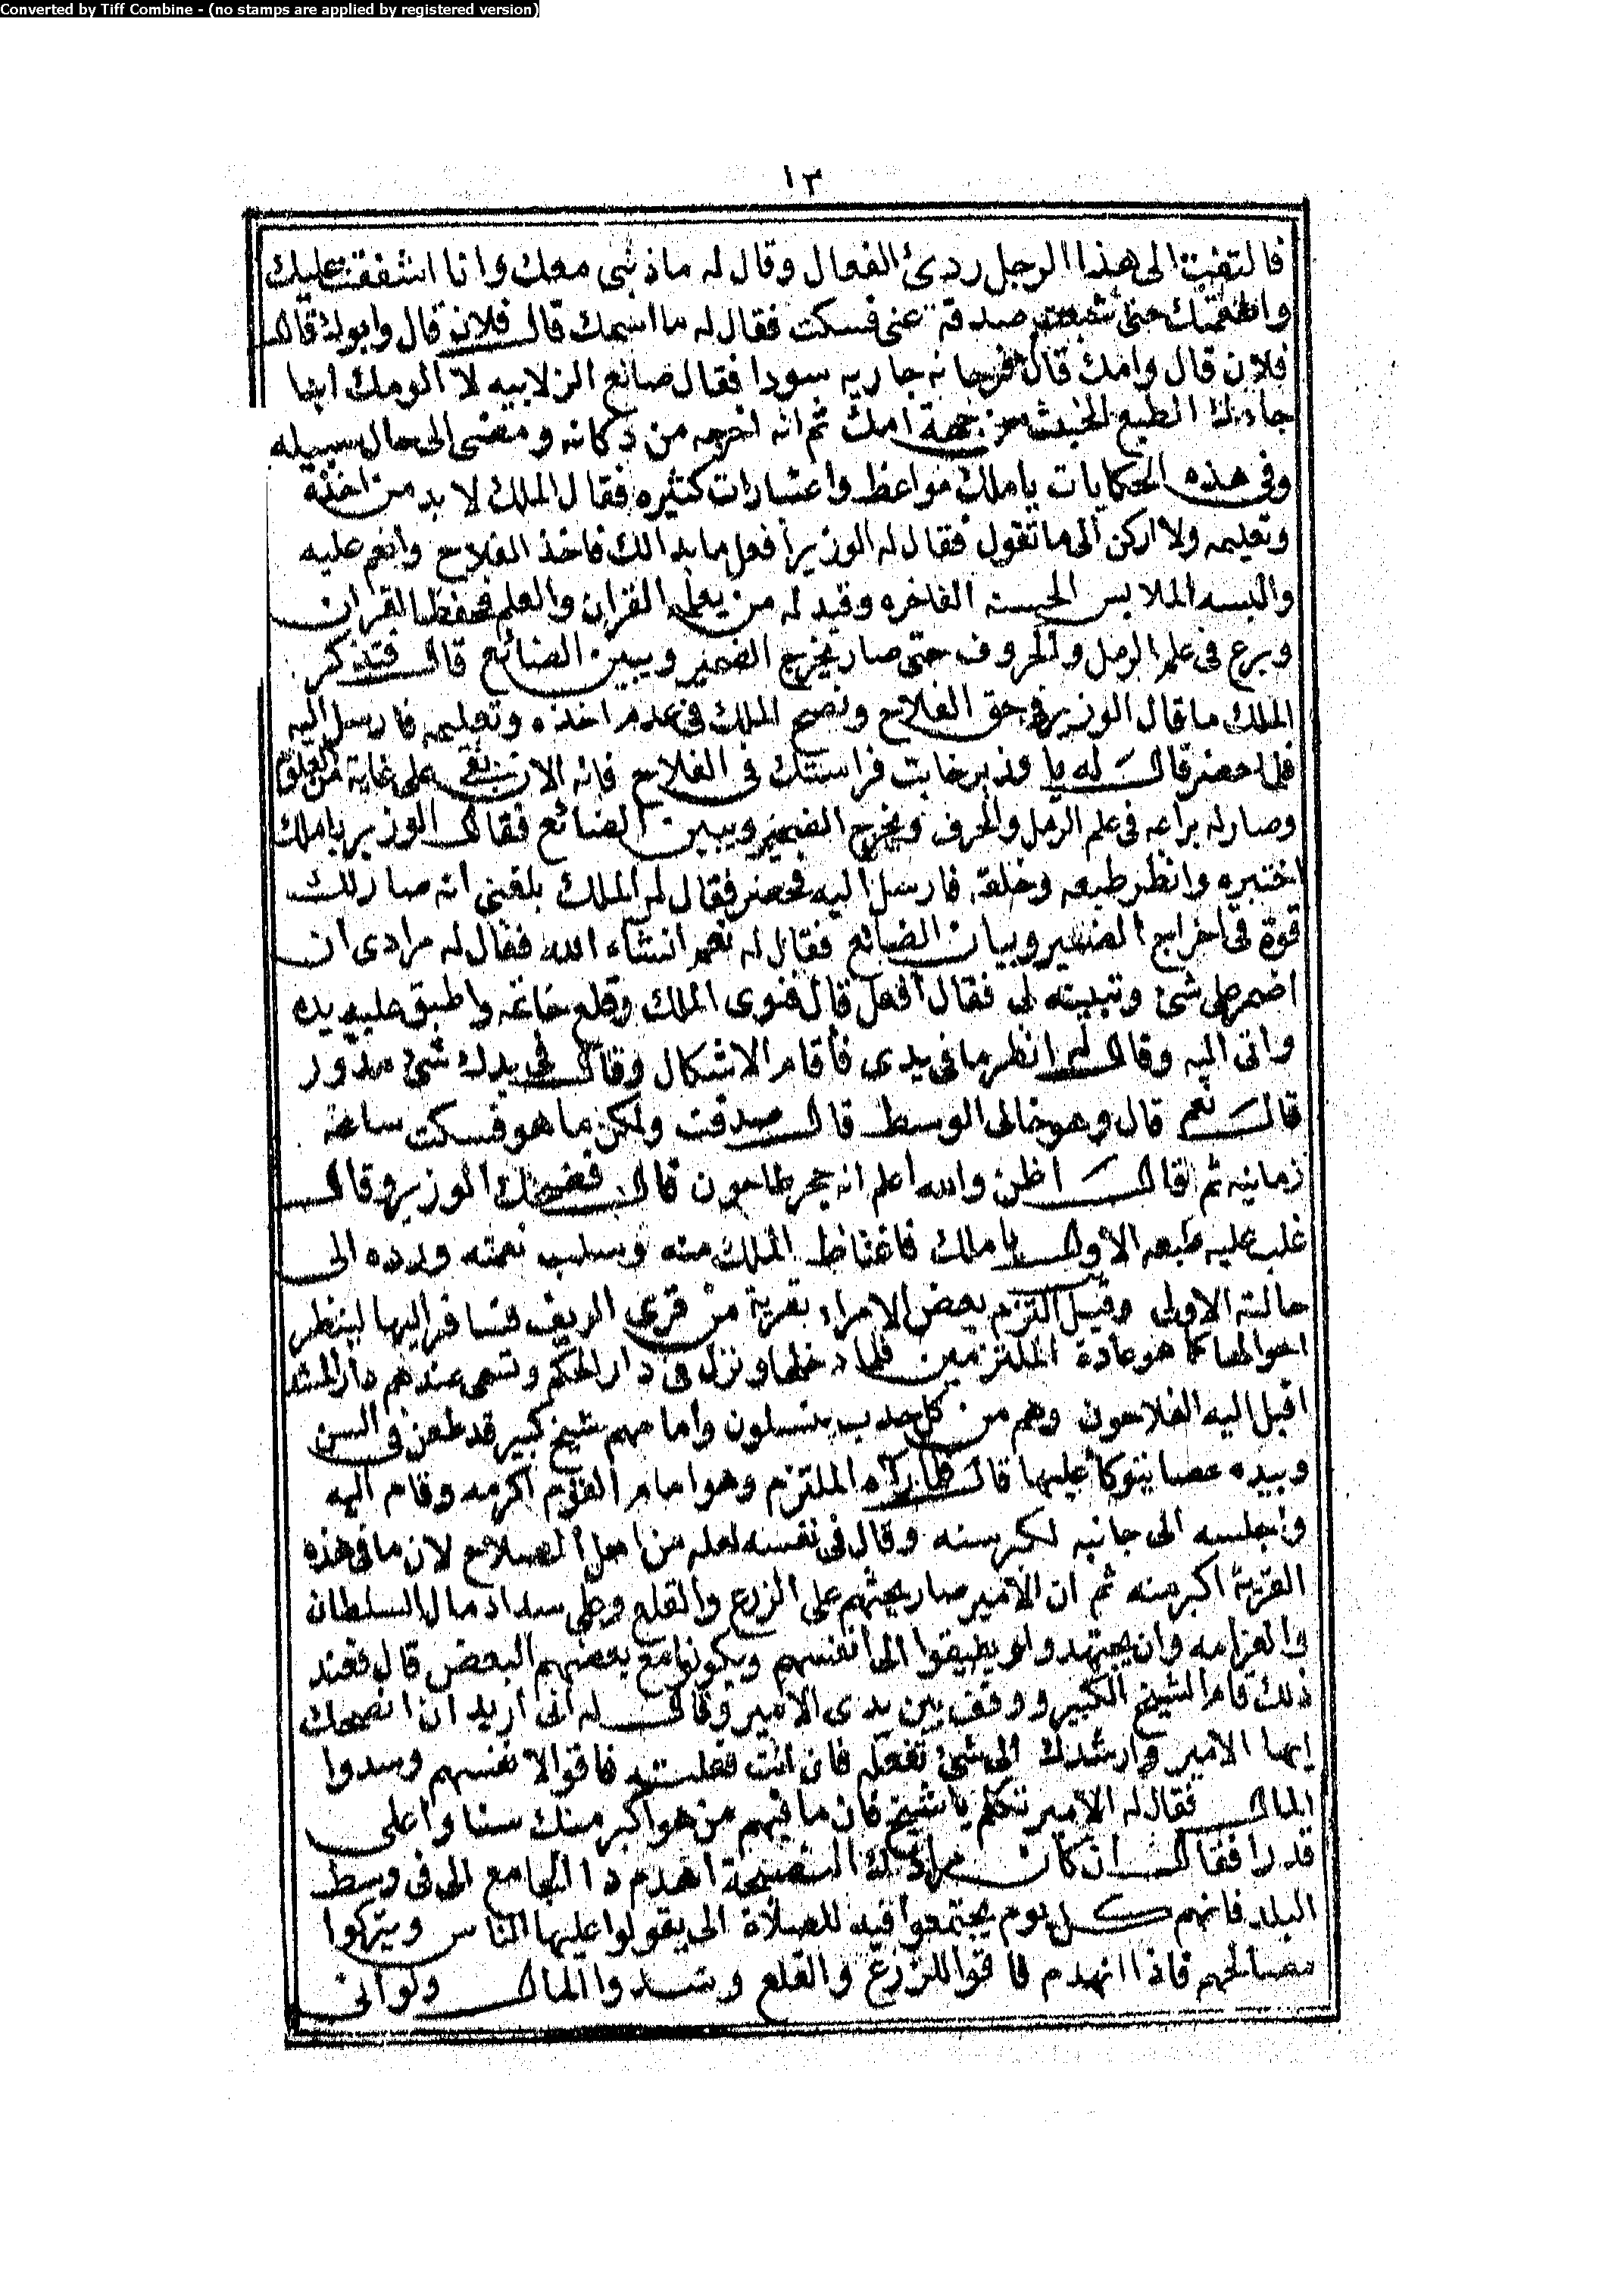 Converted by Tiff Combine - (no stamps are applied by registered version)
١٣
فالتفت الى هذا الرجل ردئ الفعال وقال له ما ذنبى معك وانا اشفقت عليك
واطعمتك حتى شبعت صدقة عنى فسكت فقال له ما اسمك قال فلان قال وابوك قال
فلان قال وامك قال مرجانه جاريه سودا فقال صانع الزلابيه لا الومك انما
جاءك الطبع الخبث من جهة امك ثم انه اخرجه من دكانه ومضى الى حال سبيله
وفى هذه الحكايات ياملك مواعظ واعتبارات كثيره فقال الملك لا بد من اخذه
وتعليمه ولا اركن الى ما تقول فقال له الوزير أفعل ما بدالك فاخذ الفلاح وانعم عليه
والبسه الملابس الحسنه الفاخره وقيد له من يعلمه القران والعلم فحفظ القران
وبرع فى علم الرمل والحروف حتى صار يخرج الضمير ويبين الضائع قال فتذكر
الملك ما قال الوزير فى حق الفلاح ونصح الملك فى عدم اخذه وتعليمه فارسل اليه
فلما حضر قال له يا وزير خابت فراستك فى الفلاح فانه الان بقى على غاية من العلوم
وصار له براعه فى علم الرمل والحرف ويخرج الضمير ويبين الضائع فقال الوزير ياملك
اختبره وانظر طبعه وخلقه فارسل اليه فحضر فقال له الملك بلغنى انه صار لك
قوة فى اخراج الضمير وبيان الضائع فقال له نعم انشاء الله فقال له مرادى ان
اضمر على شئ وتبينه لى فقال أفعل قال فنوى الملك وقلع خاتمه واطبق عليه يده
واتى اليه وقال له انظر ما فى يدى فأقام الاشكال وقال فى يدك شئ مدور
قال نعم قال وهو خالى الوسط قال صدقت ولكن ما هو فسكت ساعة
زمانيه ثم قال اظن والله اعلم انه حجر طاحون قال فضحك الوزير وقال
غلب عليه طبعه الأول ياملك فاغتاظ الملك منه وسلب نعمته ورده الى
حالته الاولى وقيل التزم بعض الامراء بقرية من قرى الريف فسافر اليها لينظر
احوالها كما هو عادة الملتزمين فلما دخلها ونزل فى دار الحكم وتسمى عندهم دار
اقبل اليه الفلاحون وهم من كل حدب ينسلون وامامهم شيخ كبير قد طعن فى السن
وبيده عصا يتوكأ عليها قال فلما رآه الملتزم وهو امام القوم اكرمه وقام اليه
واجلسه الى جانبه لكبر سنه وقال فى نفسه لعله من اهل الصلاح لان ما فى هذه
القرية اكبر منه ثم ان الامير صار يحثهم على الزرع والقلع وعلى سداد مال السلطان
والغرامه وان يجتهدوا ويفيقوا الى أنفسهم ويكونوا مع بعضهم البعض قال فعند
ذلك قام الشيخ الكبير ووقف بين يدى الامير وقال له انى أريد ان انصحك
ايها الامير وارشدك الى شئ تفعله فان انت فعلته فاقوا لانفسهم وسدوا
المال فقال له الامير تتكلم يا شيخ فان ما فيهم من هو اكبر منك سنا واعلى
قدرا فقال ان كان مرادك النصيحة اهدم دا الجامع الى فى وسط
البلد فانهم كل يوم يجتمعوا فيه للصلاة الى يقولوا عليها الناس ويتركوا
مصالحهم فاذا انهدم فاقوا للزرع والقلع وسدوا المال ولو انى